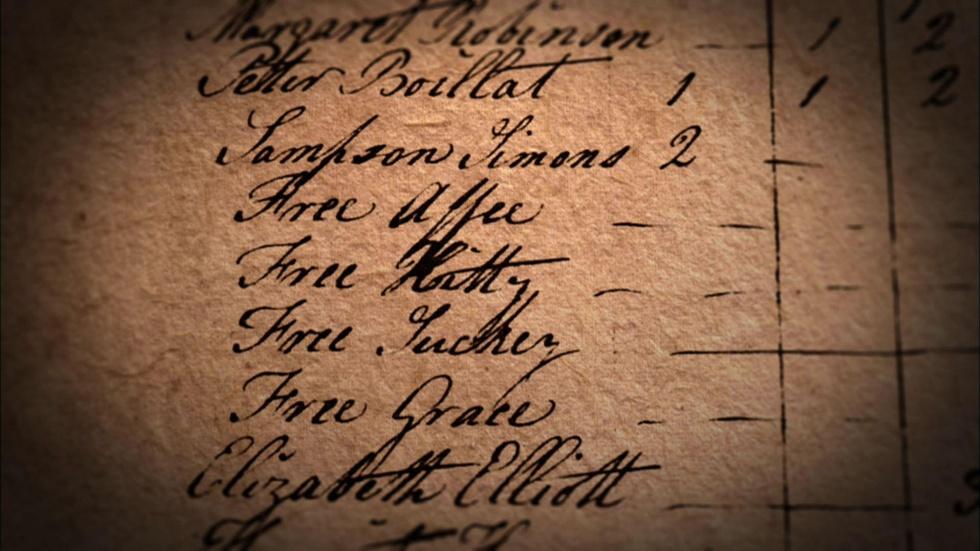 Margaret Robinson — 1 2
Peter Boillat 1 1 2
Sampson Simons 2 —
Free Affee — — —
Free Hatty — — —
Free Suckey —
Free Grace — — —
Elizabeth Elliott — 3